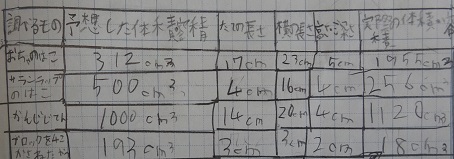 調べるもの 予想した体積 たての長さ 横の長さ 高さ 実際の体積
おちゃのはこ 312cm³ 17cm 23cm 5cm 1955cm³
サランラップのはこ 500cm³ 4cm 16cm 4cm 256cm³
かんじじてん 1000cm³ 14cm 20cm 4cm 1120cm³
ブロックを4こ 193cm³ 3cm 3cm 2cm 18cm³